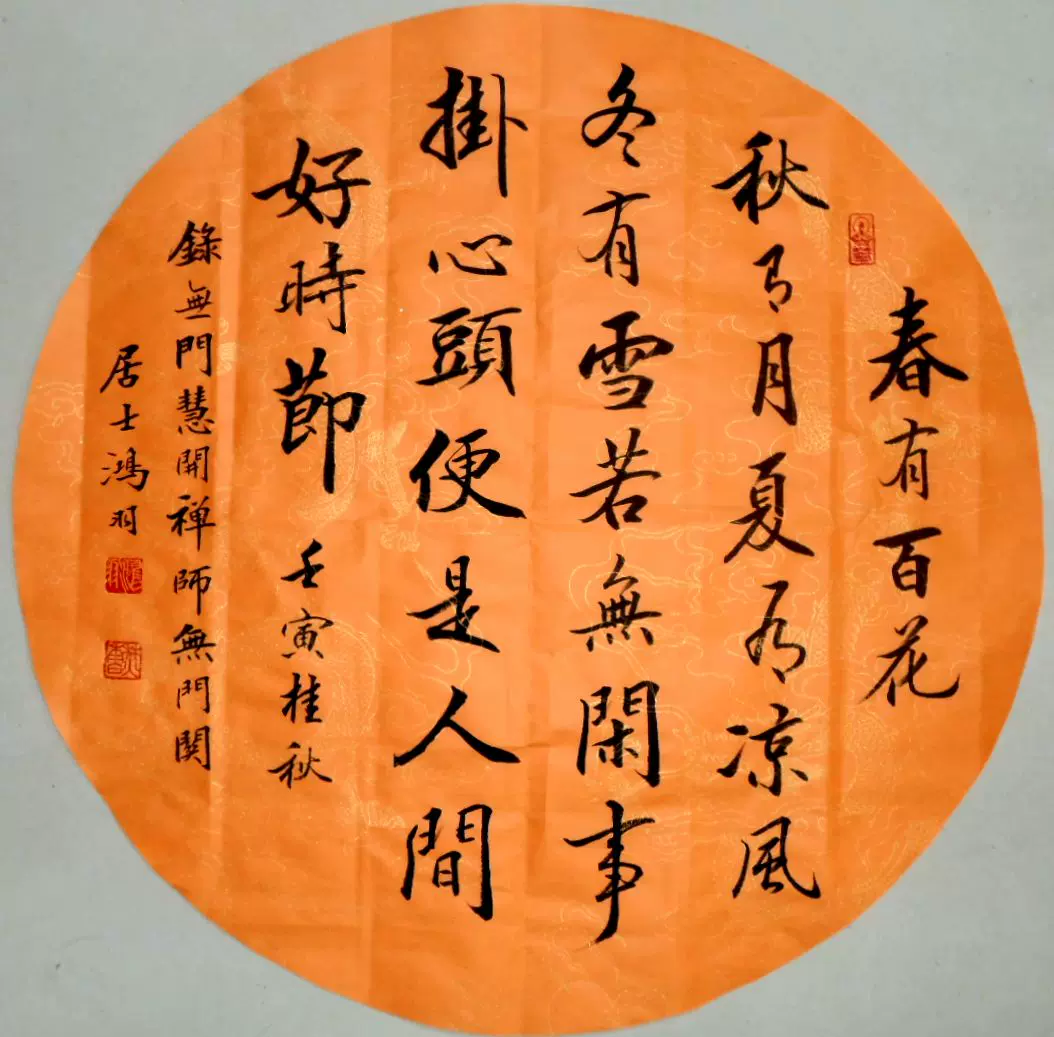 春有百花
秋有月夏有凉風
冬有雪若無閑事
掛心頭便是人間
好時節 壬寅桂秋
錄無門慧開禅師無門関
居士鴻羽